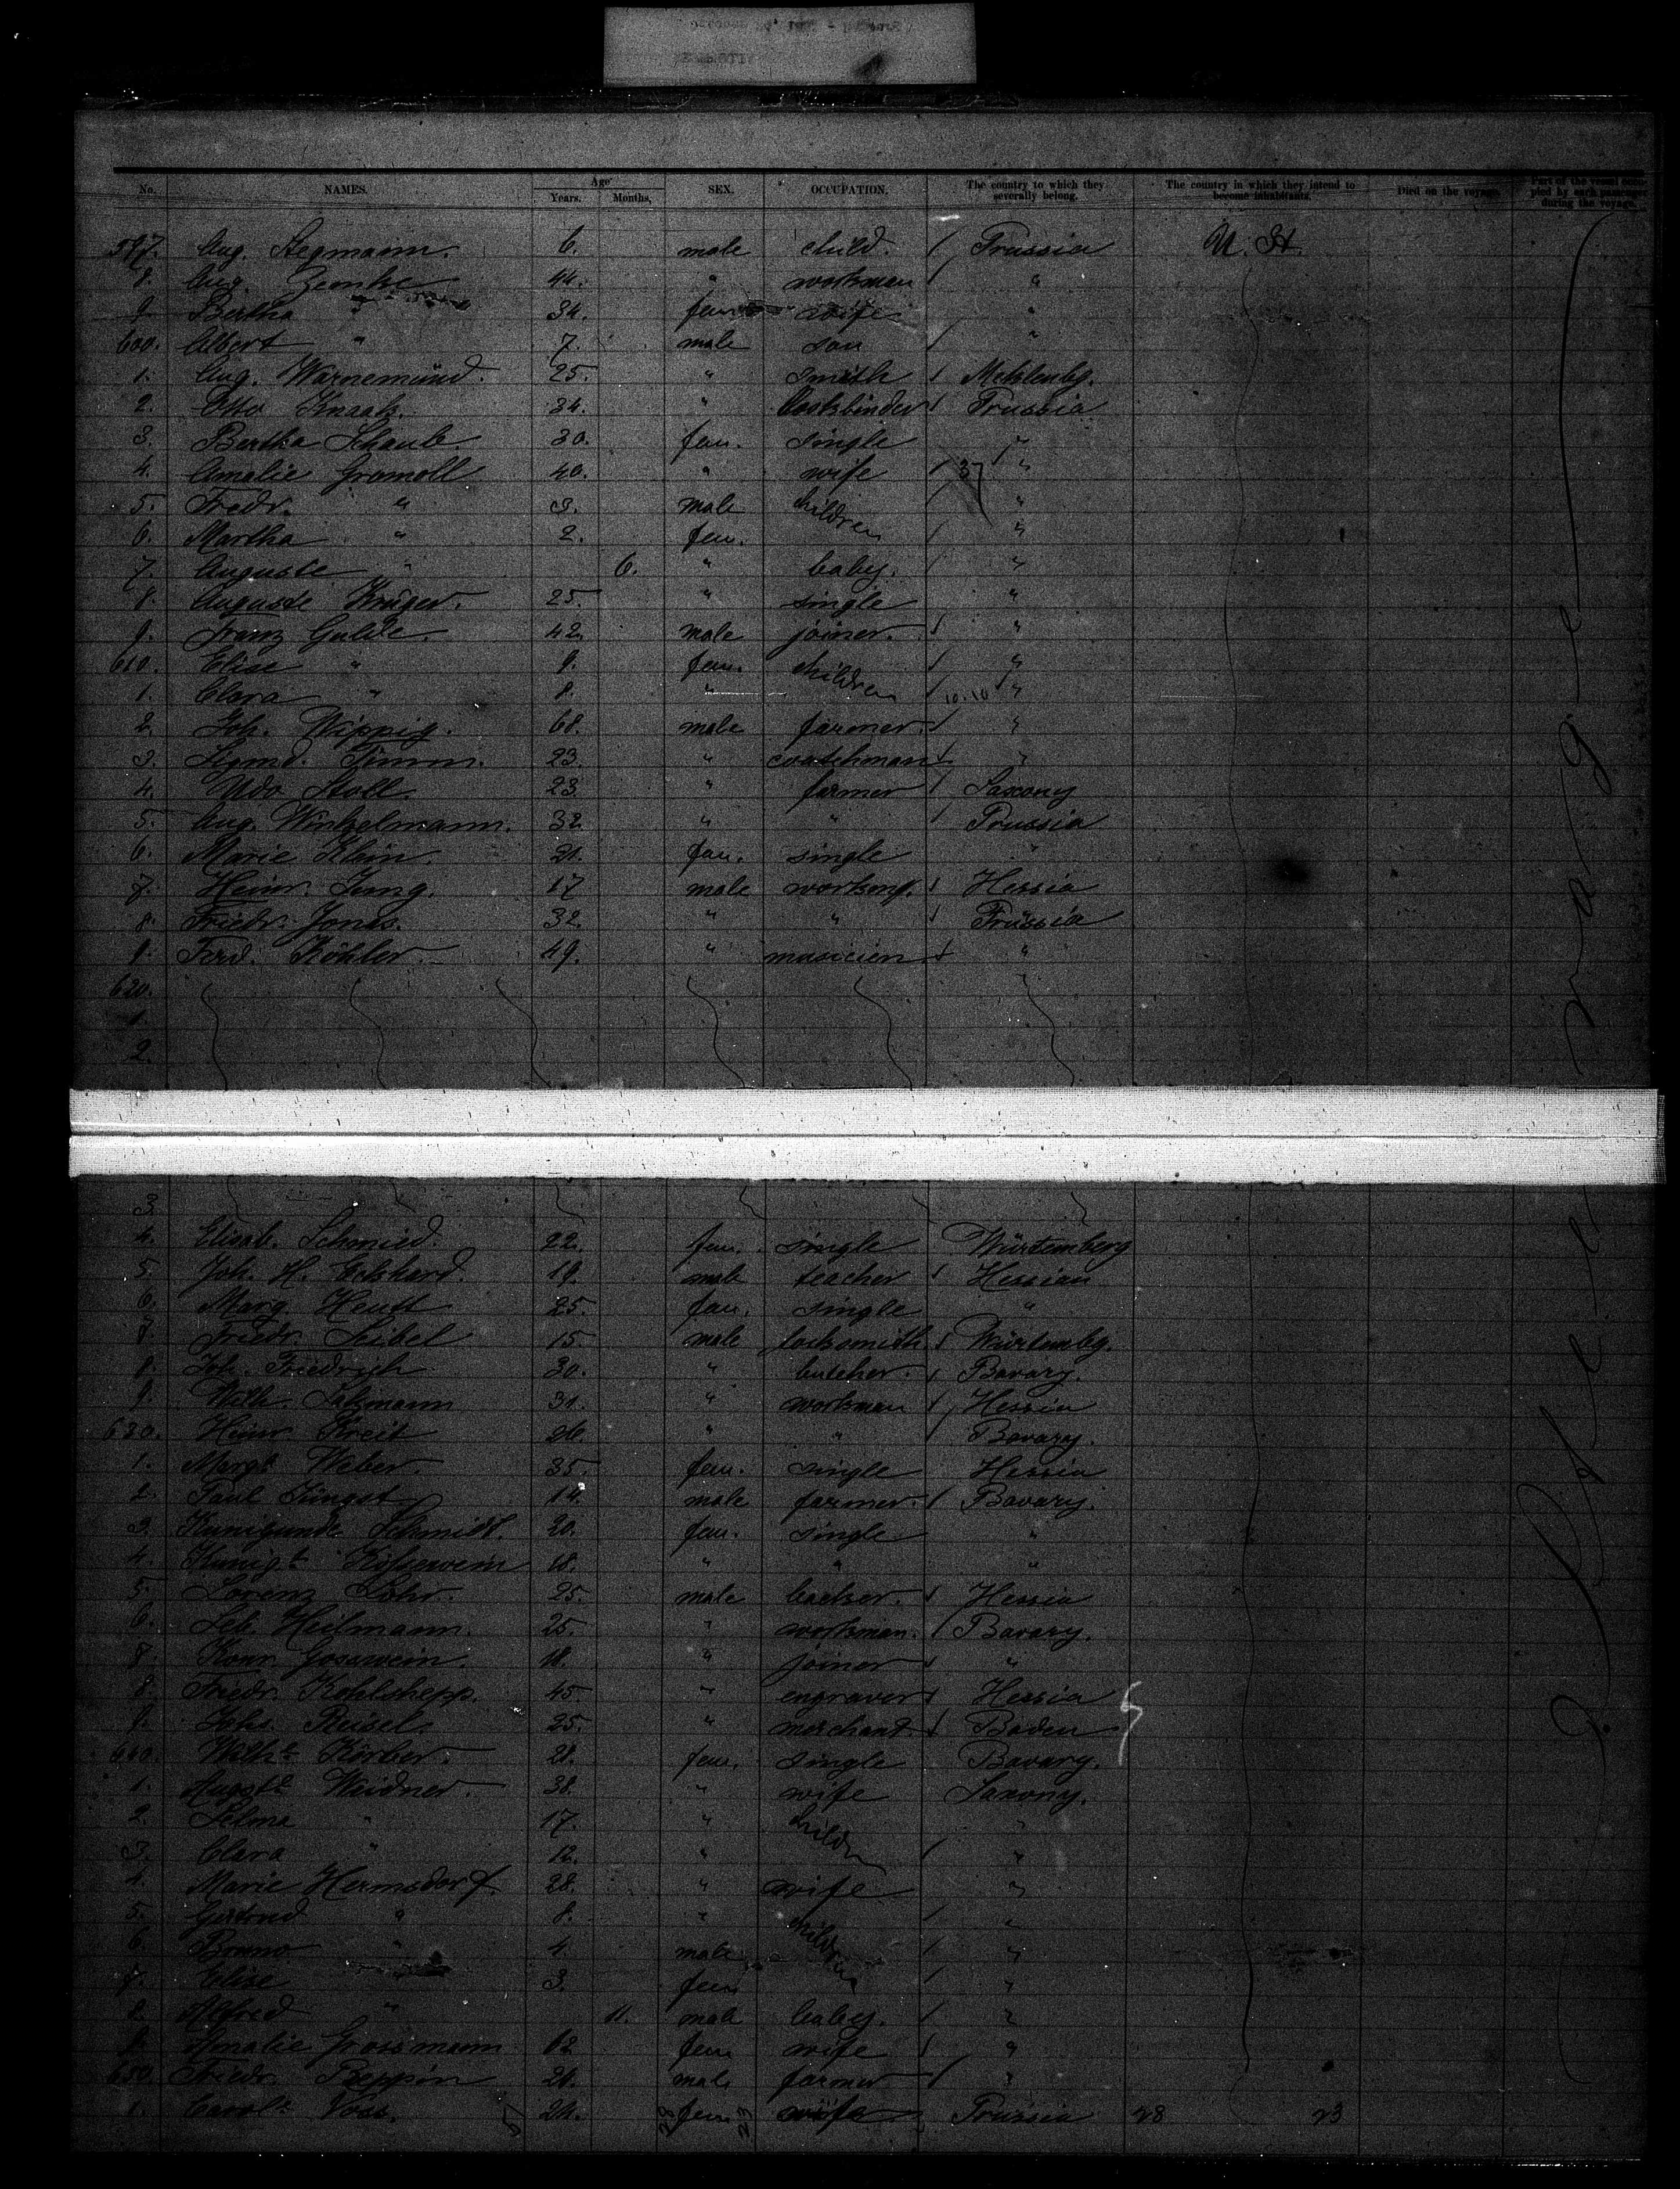 No. NAMES. Age Years. Months. SEX. OCCUPATION. The country to which they severally belong. The country in which they intend to become inhabitants. Died on the voyage. Part of the vessel occupied by each passenger during the voyage.
597. Aug. Stegmann. 6. male child. / Prussia U. St.
8. Aug. Zemke 44. " workman / "
9. Bertha " 34. fem. wife "
600. Albert " 7. male son / "
1. Aug. Warnemünd. 25. " smith / Meklenbg.
2. Otto Knaak. 34. " bookbinder / Prussia
3. Bertha Schaub 30. fem. single "
4. Amalie Gramoll 40. " wife / 37 "
5. Fredr. " 3. male children / "
6. Martha " 2. fem. / "
7. Auguste " 6. " baby. / "
8. Auguste Krüger. 25. " single "
9. Franz Gulde. 42. male joiner. / "
610. Elise " 9. fem. children / "
1. Clara " 8. " / 10.10 "
2. Joh. Wippig. 68. male farmer. / "
3. Sigmd. Timm. 23. " coatchman / "
4. Udo Stoll. 23 " farmer / Saxony
5. Aug. Winkelmann. 32. " " / Prussia
6. Marie Klein. 21. fem. single "
7. Heinr. Jung. 17 male workmn. / Hessia
8. Friedr. Jonas. 32. " " / Prussia
9. Ferd. Köhler. 49. " musicien / "
620.
1.
2.
3.
4. Elisab. Schmied. 22. fem. single Würtemberg
5. Joh. H. Eckhard. 19. male teacher / Hessian
6. Marg. Henft 25. fem. single "
7. Friedr. Seibel 15. male locksmith / Würtembg.
8. Joh. Friedrich 30. " butcher. / Bavary.
9. Wilh. Salzmann 31. " workman / Hessia
630. Heinr. Kreit 26. " " / Bavary.
1. Margt. Weber. 35. fem. single Hessia
2. Paul Jüngst 14. male farmer. / Bavary.
3. Kunigunde Schmidt. 20. fem. single "
4. Kunigt. 18. " " "
5. Lorenz Löhr. 25. male backer. / Hessia
6. Seb. Heilmann. 25. " workman. / Bavary.
7. Konr. Gosswein. 18. " joiner / "
8. Friedr. Kohlshepp. 45. " engraver / Hessia
9. Johs. Reisel. 25. " merchant / Baden
640. Wilht. Körber. 28. fem. single Bavary.
1. Augste. Weidner. 38. " wife Saxony.
2. Selma " 17. " children "
3. Clara " 12. " / "
4. Marie Hermsdorf. 28. " wife "
5. Gertrud " 8. " children / "
6. Bruno " 4. male / "
7. Elise 3. fem / "
8. Alfred " 11. male baby. / "
9. Amalie Grossmann 62 fem wife / "
650. Friedr. Beppin 26. male farmer / "
1. Carolt. Voss. 24. fem wife Prussia 28 23